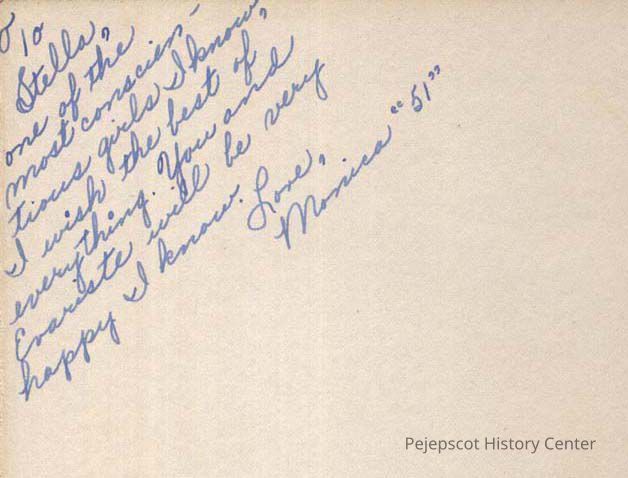 To
Stella,
one of the
most conscien-
tious girls I know,
I wish the best of
everything. You and
Evariste will be very
happy I know.
Love,
Monica "51"
Pejepscot History Center